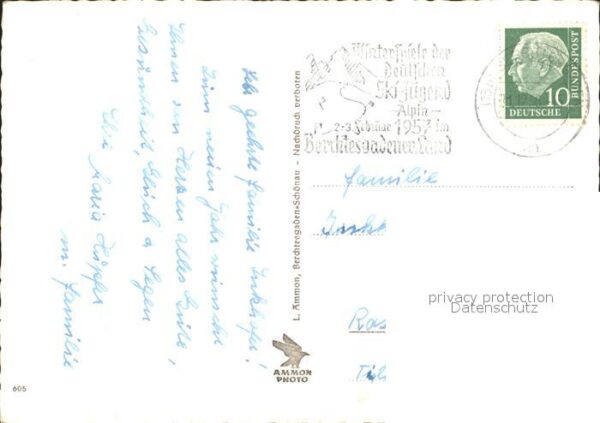 Sehr geehrte Familie Inkhofer!
Zum neuen Jahr wünsche
Ihnen von Herzen alles Gute,
Gesundheit, Glück u. Segen
Ihre Maria Höpfer
m. Familie
605
L. Ammon, Berchtesgaden-Schönau – Nachdruck verboten
AMMON
PHOTO
Winterspiele der
Deutschen
Skijugend
Alpin –
2-3. Februar 1957 im
Berchtesgadener Land
10
DEUTSCHE
BUNDESPOST
Familie
Inkh
privacy protection
Datenschutz
Ros